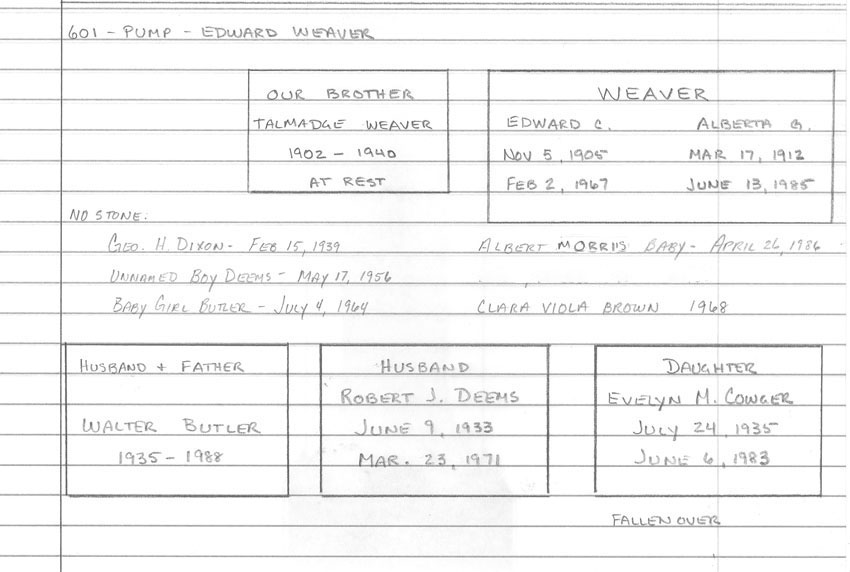 601 - PUMP - EDWARD WEAVER
OUR BROTHER
TALMADGE WEAVER
1902 - 1940
AT REST
WEAVER
EDWARD C. ALBERTA G.
NOV 5, 1905 MAR 17, 1912
FEB 2, 1967 JUNE 13, 1985
NO STONE:
GEO. H. DIXON - FEB 15, 1939 ALBERT MORRIS BABY - APRIL 26, 1986
UNNAMED BOY DEEMS - MAY 17, 1956
BABY GIRL BUTLER - JULY 4, 1964 CLARA VIOLA BROWN 1968
HUSBAND + FATHER
WALTER BUTLER
1935 - 1988
HUSBAND
ROBERT J. DEEMS
JUNE 9, 1933
MAR. 23, 1971
DAUGHTER
EVELYN M. COWGER
JULY 24, 1935
JUNE 6, 1983
FALLEN OVER